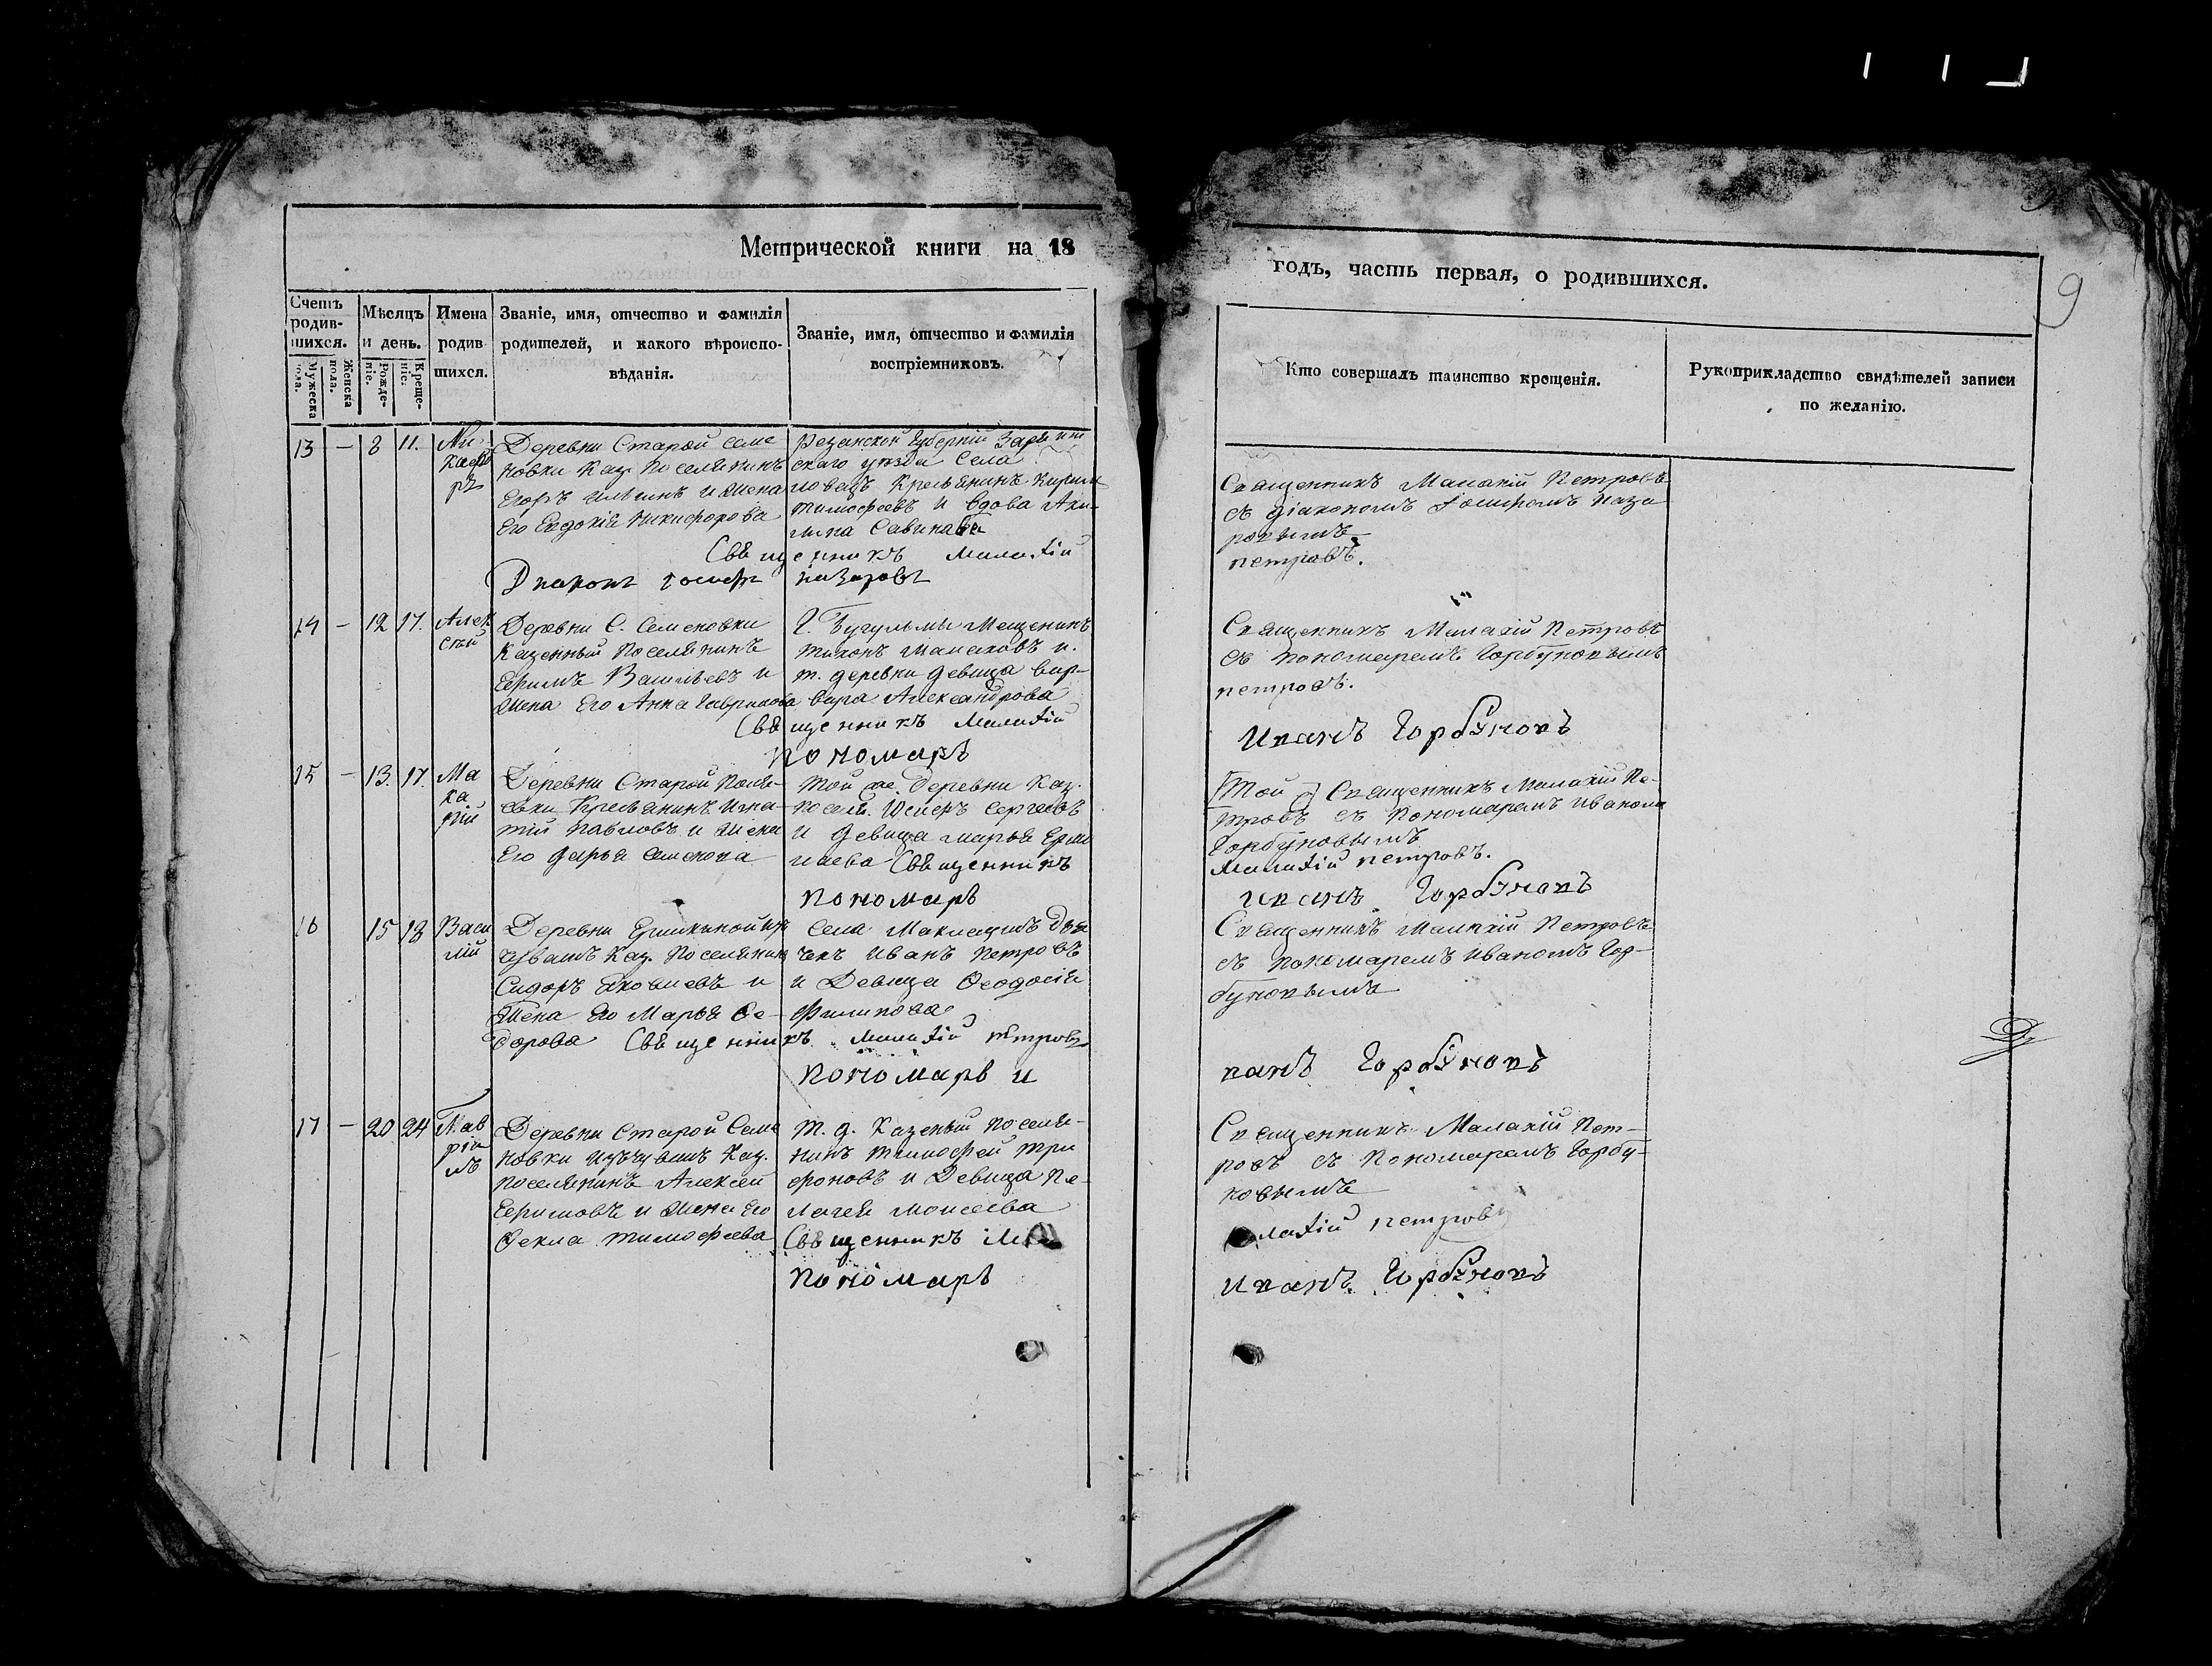 Метрической книги на 18
годъ, часть первая, о родившихся.
9
Счетъ родив-шихся.
Мужеска пола.
Женска пола.
Мѣсяцъ и день.
Рожде-ніе.
Креще-ніе.
Имена родив шихся.
Званіе, имя, отчество и фамилія
родителей, и какого вѣроиспо-
вѣданія.
Званіе, имя, отчество и фамилія
воспріемниковъ.
Кто совершалъ таинство крещенія.
Рукоприкладство свидѣтелей записи
по желанію.
13 — 8 11.
Ни
кифо
ръ
Деревни Старой Семе
новки Каз. Поселянинъ
Егоръ Ильинъ и жена
Его Евдокія Никифорова
Резанской губерніи
скаго уѣзда Села
Крестьянинъ
Тимофеевъ и вдова Аку
лина Савинова
Священникъ Малахій
Діаконъ Іосифъ Назаровъ
Священникъ Малахій Петровъ
съ діакономъ Іосифомъ Наза
ровымъ
петровъ.
14 — 12 17.
Алек
сѣй
Деревни С. Семеновки
Казенный Поселянинъ
Ефимъ Васильевъ и
жена Его Анна Гаврилова
Г. Бугульмы Мещенинъ
Тихонъ Малаховъ и
т. деревни девица Вар-
вара Александрова
Священникъ Малахій
Пономарь
Священникъ Малахій Петровъ
съ пономаремъ Горбуновымъ
петровъ.
Иванъ Горбуновъ
15 — 13. 17.
Ма
ка
рій
Деревни Старой
Крестьянинъ Игна-
тій Павловъ и жена
Его Дарья Семенова
Той же деревни Каз.
посел. Сергеевъ
и девица Марья Ермо
лаева Священникъ
Пономарь
Той Священникъ Малахій Пе-
тровъ съ Пономаремъ Иваномъ
Горбуновымъ
Малахій петровъ.
Иванъ Горбуновъ
16 15 18
Васи
лій
Деревни
чувашъ Каз. Поселянин
Сидоръ Яковлевъ и
жена Его Марья Ѳе-
дорова Священникъ Малахій петровъ
Села Дья
чекъ Иванъ Петровъ
и Девица Ѳеодосія
Филипова
Пономарь И
Священникъ Малахій Петровъ
съ пономаремъ Иваномъ Гор-
буновымъ
ванъ Горбуновъ
17 — 20 24
Гав
рі
илъ
Деревни Старой Семе
новки изъ чувашъ Каз.
поселянинъ Алексей
Ефимовъ и жена Его
Ѳекла Тимофеева
Т. д. Казеный поселя-
нинъ Тимофей Три
фоновъ и Девица Пе-
лагея Моисеева
Священникъ Ма
Пономарь
Священникъ Малахій Пет-
ровъ съ Пономаремъ Горбу-
новымъ
лахій петровъ
Иванъ Горбуновъ